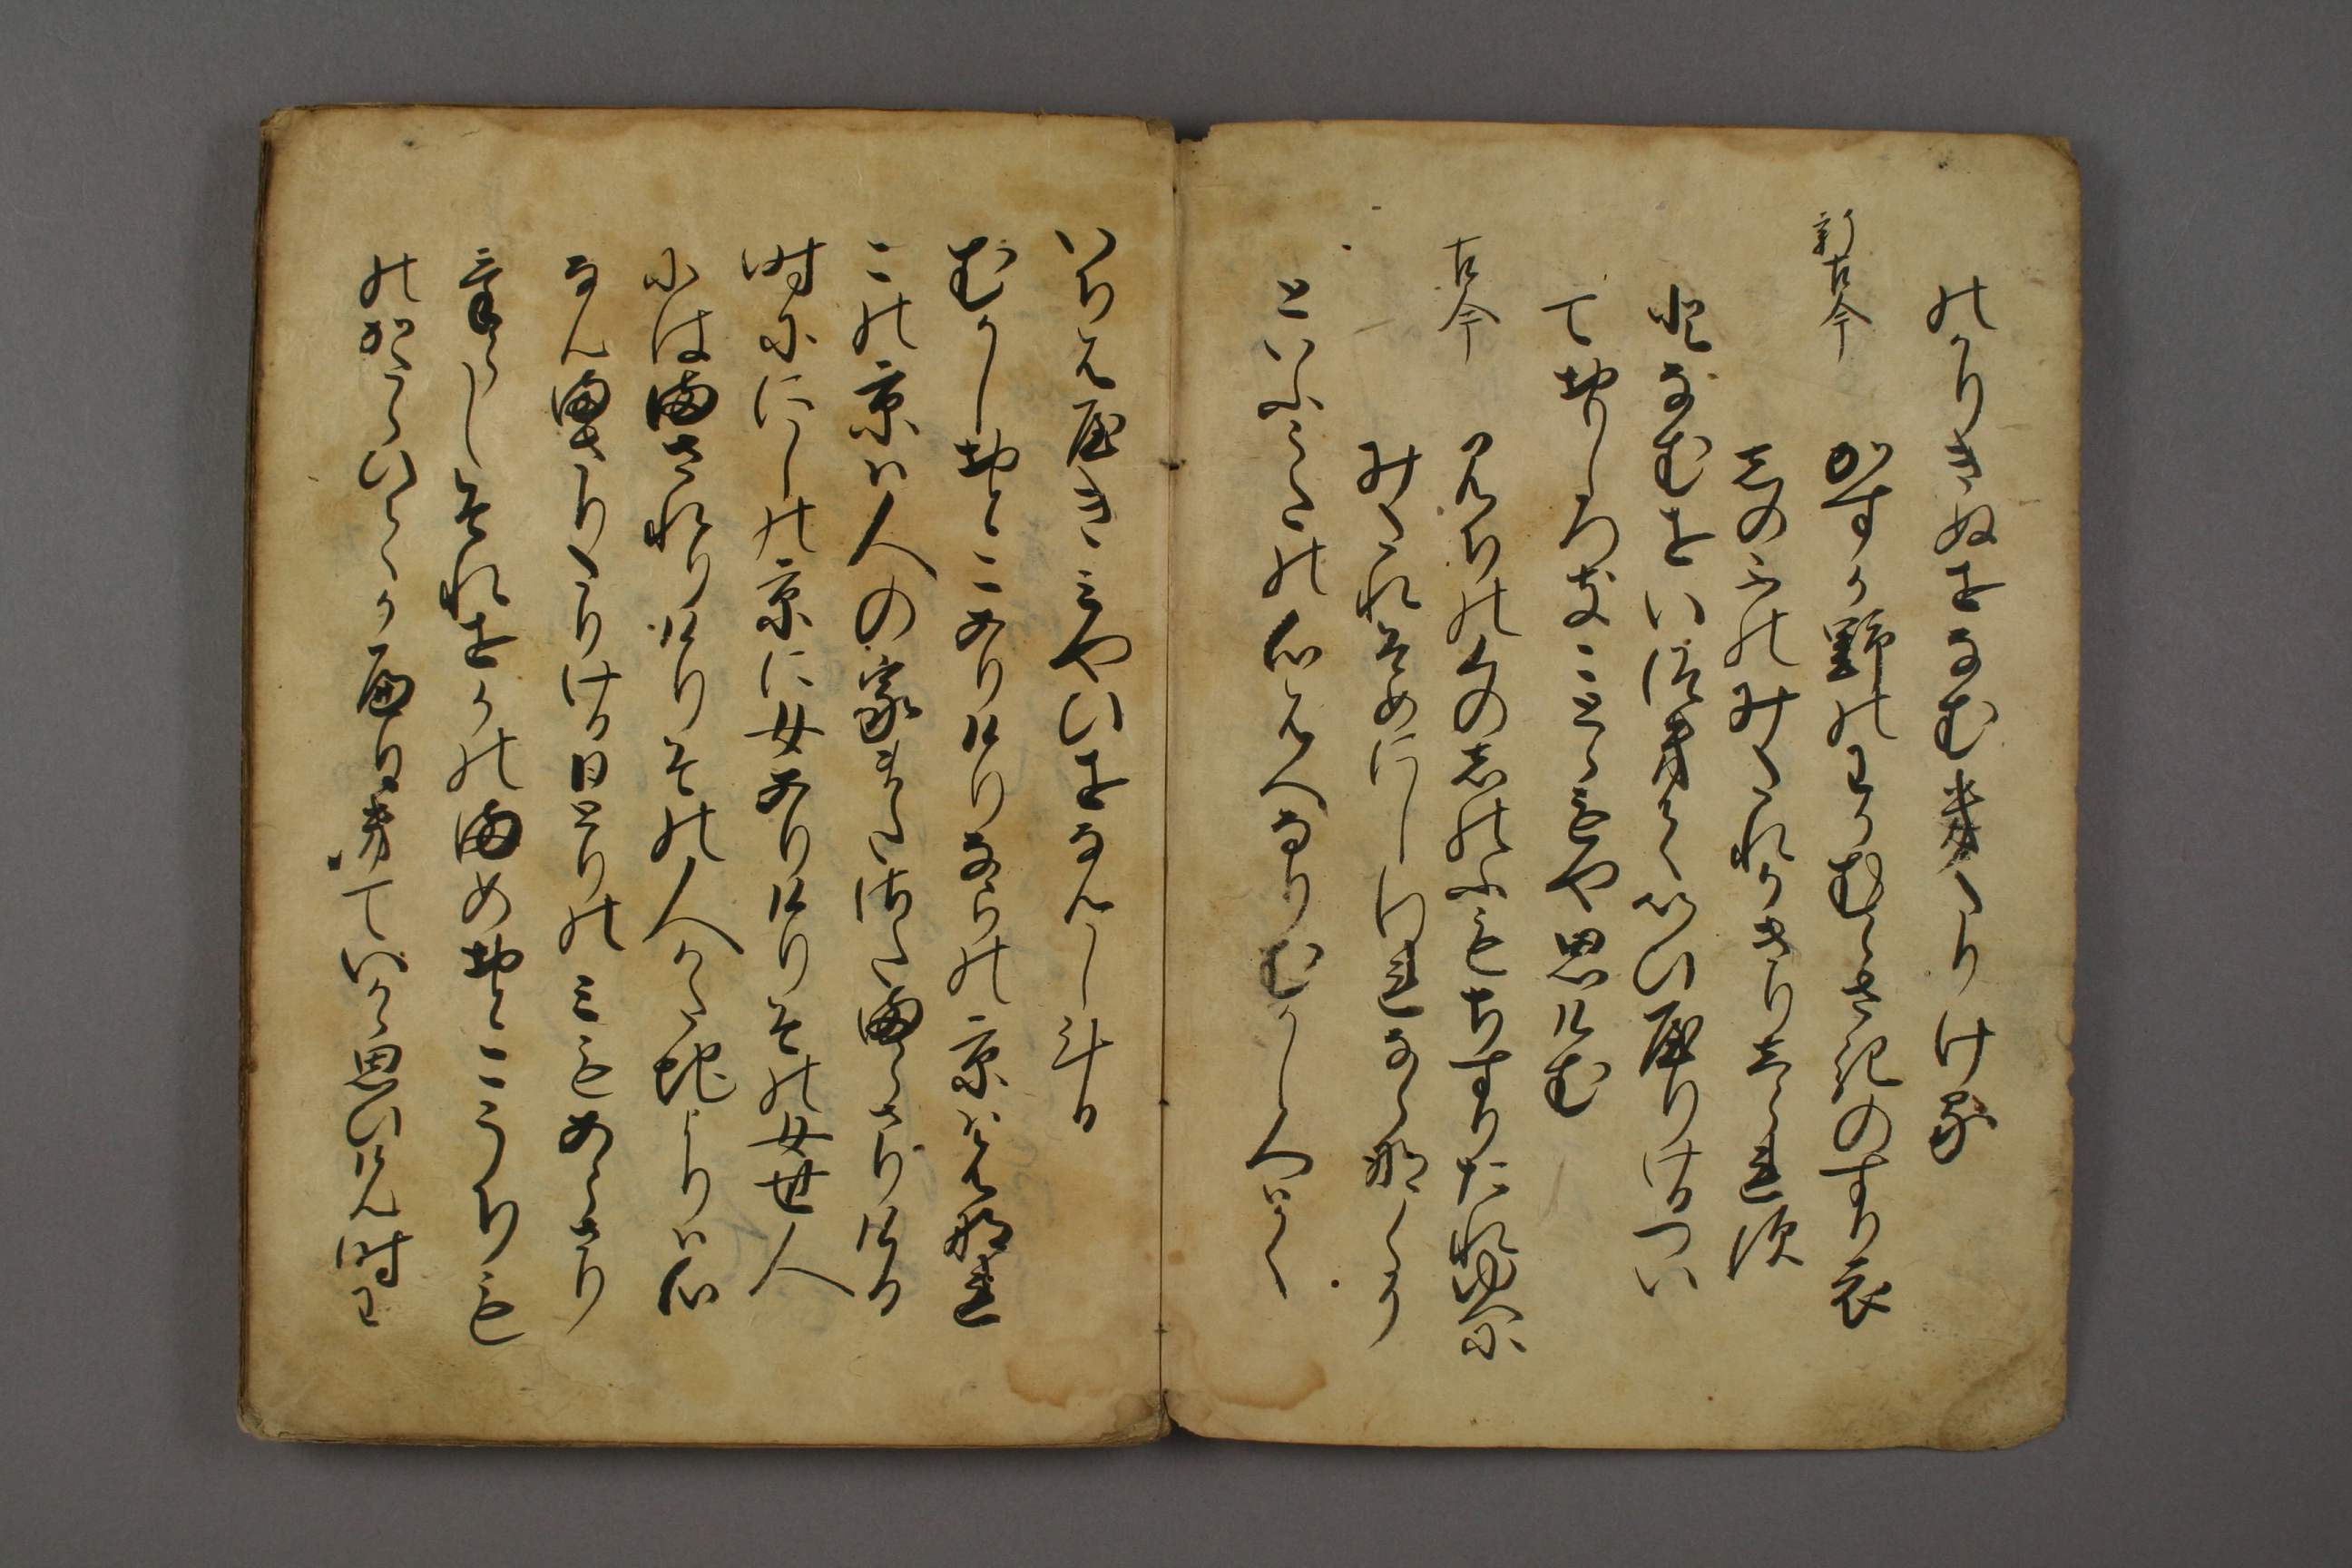 のかりきぬをなむきたりける
新古今
かすか野のわかむらさきのすり衣
しのふのみたれかきりしられす
となむをいつきていひやりけるつい
ておもしろきことゝもや思けむ
古今
みちのくの忍ふもちすりたれゆへに
みたれそめにしわれならなくに
といふうたの心はへなりむかし人はかく
いちはやきみやひをなんしける
むかしおとこありけりならの京ははなれ
この京は人の家またさたまらさりける
時ににしの京に女ありけりその女世人
にはまされりけりその人かたちよりは心
なんまさりたりけるひとりのみもあらさり
けらしそれをかのまめおとこうち
ものかたらひてかへりきていかゝ思ひけん時は